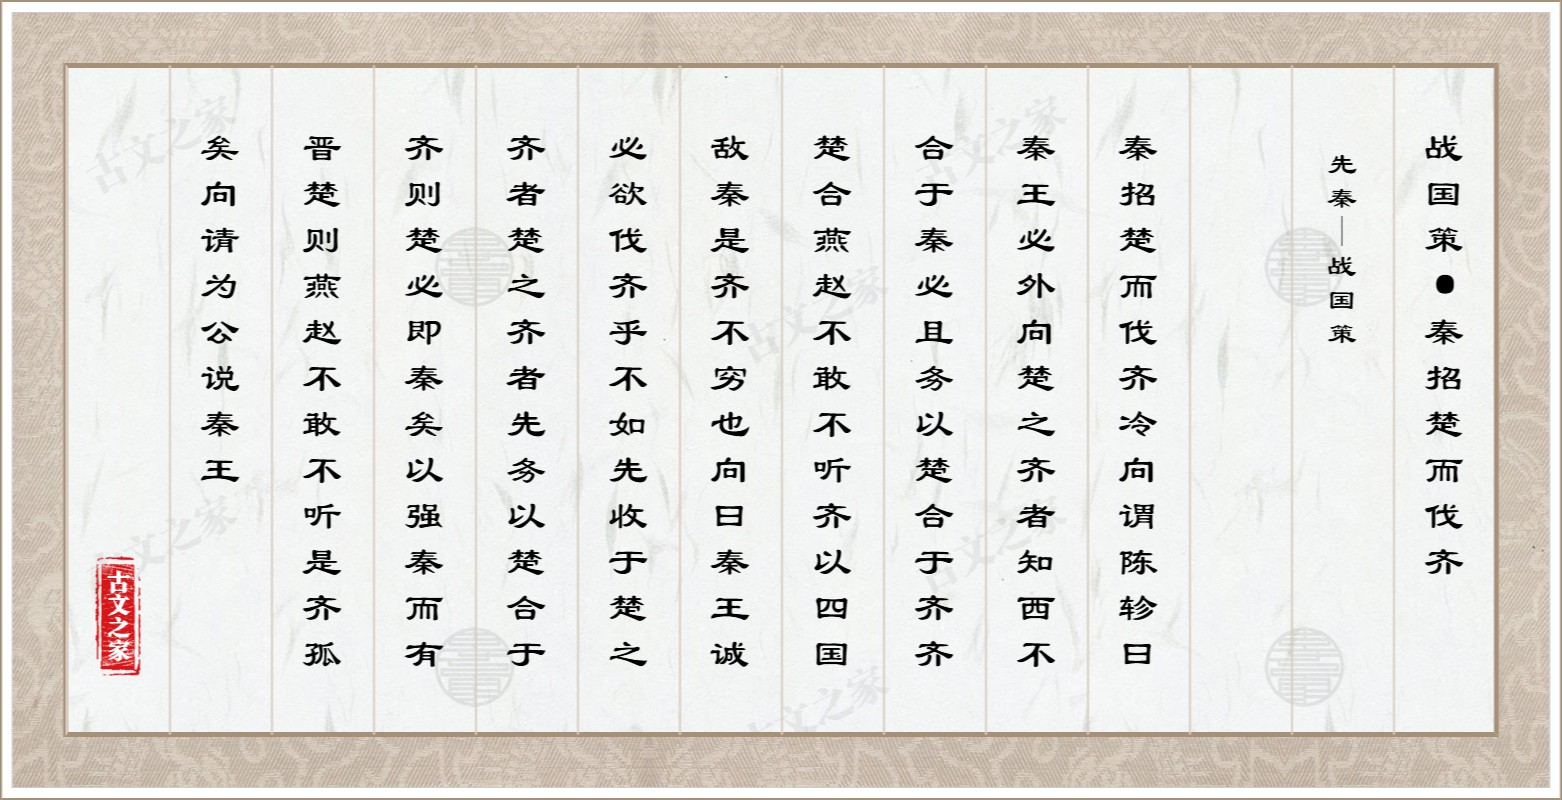 战国策●秦招楚而伐齐
先秦—战国策
秦招楚而伐齐冷向谓陈轸曰
秦王必外向楚之齐者知西不
合于秦必且务以楚合于齐齐
楚合燕赵不敢不听齐以四国
敌秦是齐不穷也向曰秦王诚
必欲伐齐乎不如先收于楚之
齐者楚之齐者先务以楚合于
齐则楚必即秦矣以强秦而有
晋楚则燕赵不敢不听是齐孤
矣向请为公说秦王
古文之家